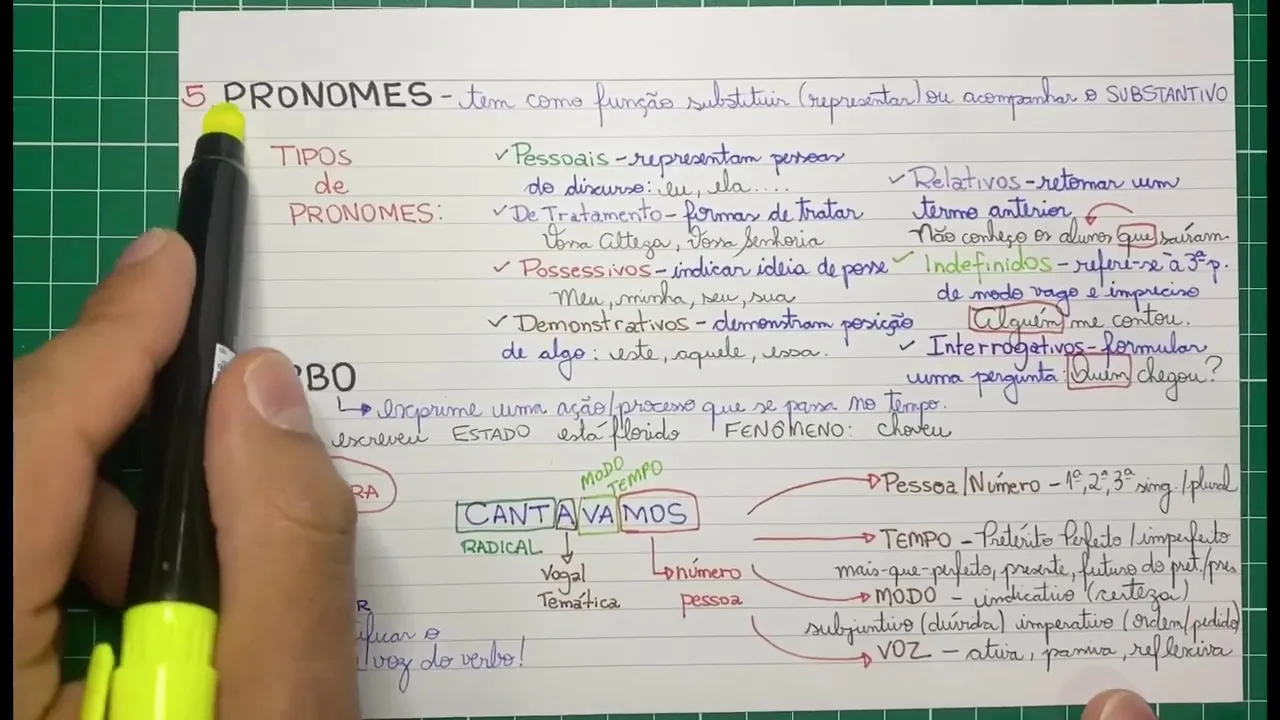 5 PRONOMES - tem como função substituir (representar) ou acompanhar o SUBSTANTIVO
TIPOS
de
PRONOMES:
✓ Pessoais - representam pessoas
do discurso: eu, ela....
✓ De Tratamento - formas de tratar
Vossa Alteza, Vossa Senhoria
✓ Possessivos - indicar ideia de posse
Meu, minha, seu, sua
✓ Demonstrativos - demonstram posição
de algo: este, aquele, essa.
✓ Relativos - retomar um
termo anterior
Não conheço os alunos que saíram.
✓ Indefinidos - refere-se à 3ª p.
de modo vago e impreciso
Alguém me contou.
✓ Interrogativos - formular
uma pergunta: Quem chegou?
RBO
exprime uma ação/processo que se passa no tempo.
escreveu ESTADO está florido FENÔMENO: choveu
RA
MODO
TEMPO
CANTAVAMOS
RADICAL
Vogal
Temática
número
pessoa
Pessoa/Número - 1ª, 2ª, 3ª sing/plural
TEMPO - Pretérito Perfeito/imperfeito
mais-que-perfeito, presente, futuro do pret./pres
MODO - indicativo (certeza)
subjuntivo (dúvida) imperativo (ordem/pedido)
VOZ - ativa, passiva, reflexiva
R
ificar o
voz do verbo!